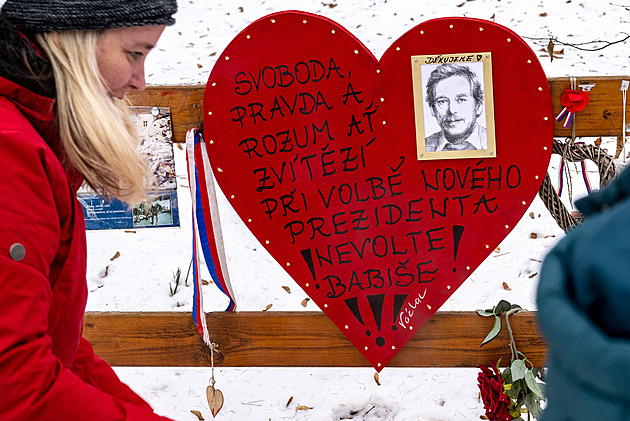 DĚKUJEME
SVOBODA,
PRAVDA A
ROZUM AŤ
ZVÍTĚZÍ
PŘI VOLBĚ NOVÉHO
PREZIDENTA
!NEVOLTE!
BABIŠE
!!!
Václav